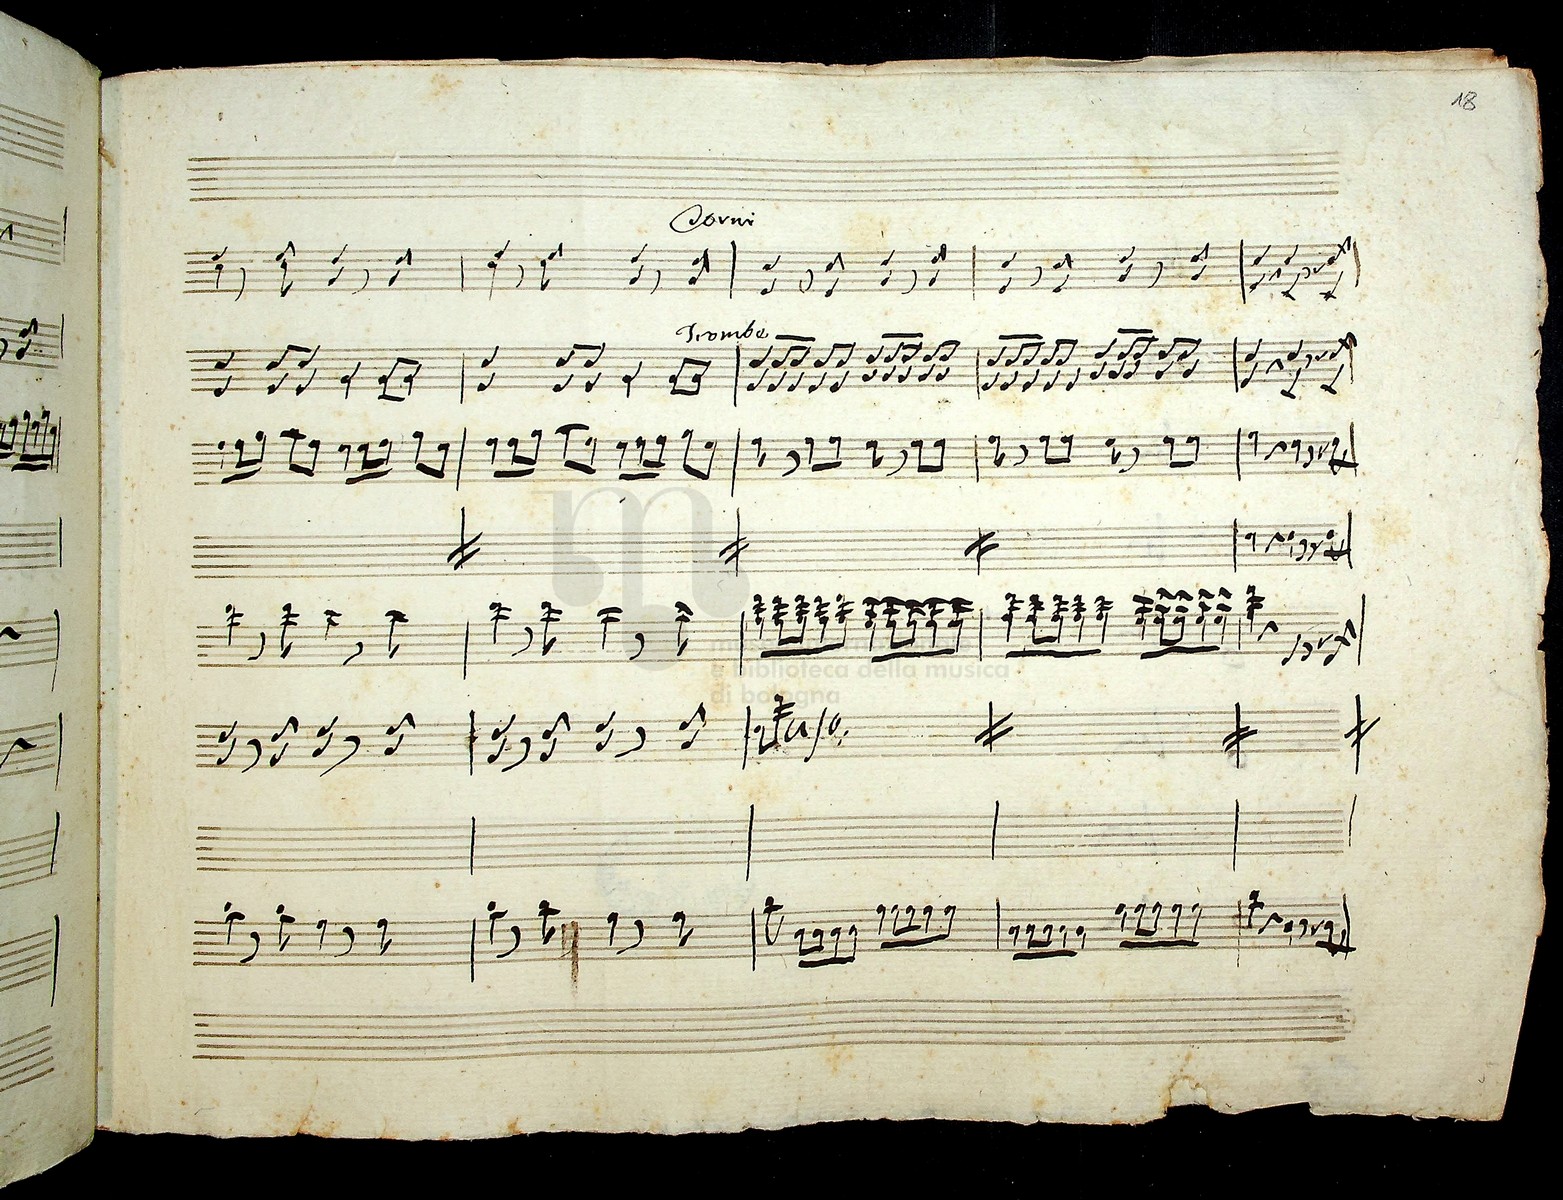 18
Corni
Trombe
museo internazionale
e biblioteca della musica
di bologna